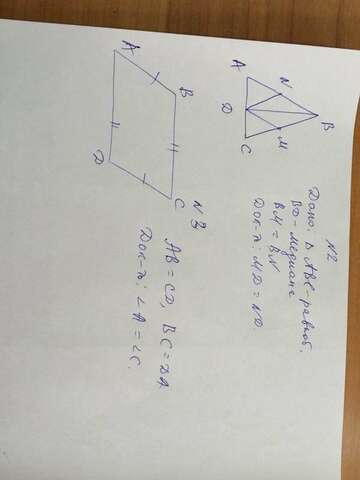 N2
Дано: Δ ABC-равноб.
BD-медиана
BM=BN
Док-ть: MD=ND.
A
N
B
D
M
C
N 3
AB=CD, BC=DA
Док-ть: ∠A=∠C.
A
B
D
C